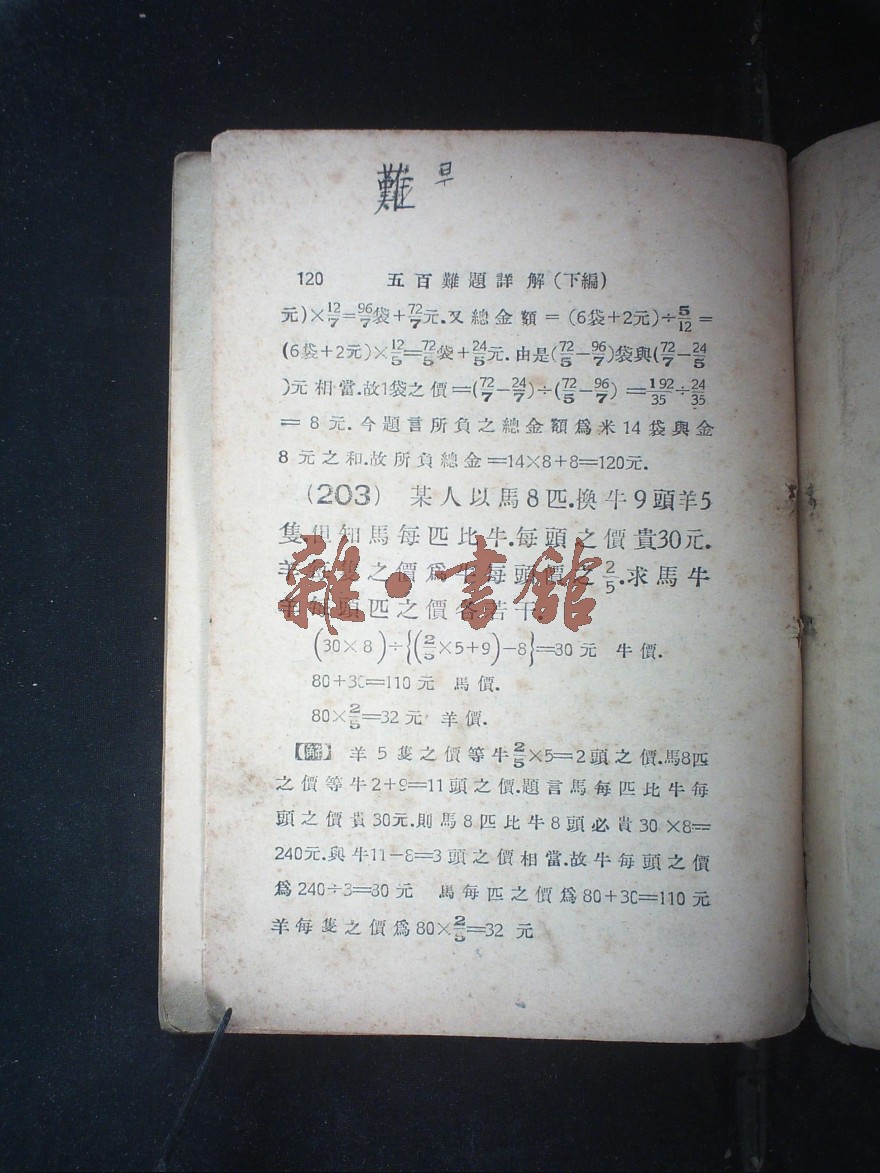 難 早
120 五百難題詳解(下編)
元)×12/7=96/7袋+72/7元.又總金額=(6袋+2元)÷5/12=
(6袋+2元)×12/5=72/5袋+24/5元.由是(72/5-96/7)袋與(72/7-24/5
)元相當.故1袋之價=(72/7-24/7)÷(72/5-96/7)=192/35÷24/35
=8元.今題言所負之總金額爲米14袋與金
8元之和.故所負總金=14×8+8=120元.
(203) 某人以馬8匹.換牛9頭羊5
隻但知馬每匹比牛.每頭之價貴30元.
羊每隻之價爲牛每頭價之2/5.求馬牛
羊每頭匹之價各若干.
(30×8)÷{(2/5×5+9)-8}=30元 牛價.
80+30=110元 馬價.
80×2/5=32元 羊價.
【解】 羊5隻之價等牛2/5×5=2頭之價.馬8匹
之價等牛2+9=11頭之價.題言馬每匹比牛每
頭之價貴30元.則馬8匹比牛8頭必貴30×8=
240元.與牛11-8=3頭之價相當.故牛每頭之價
爲240÷3=80元 馬每匹之價爲80+30=110元
羊每隻之價爲80×2/5=32元
雜·書館